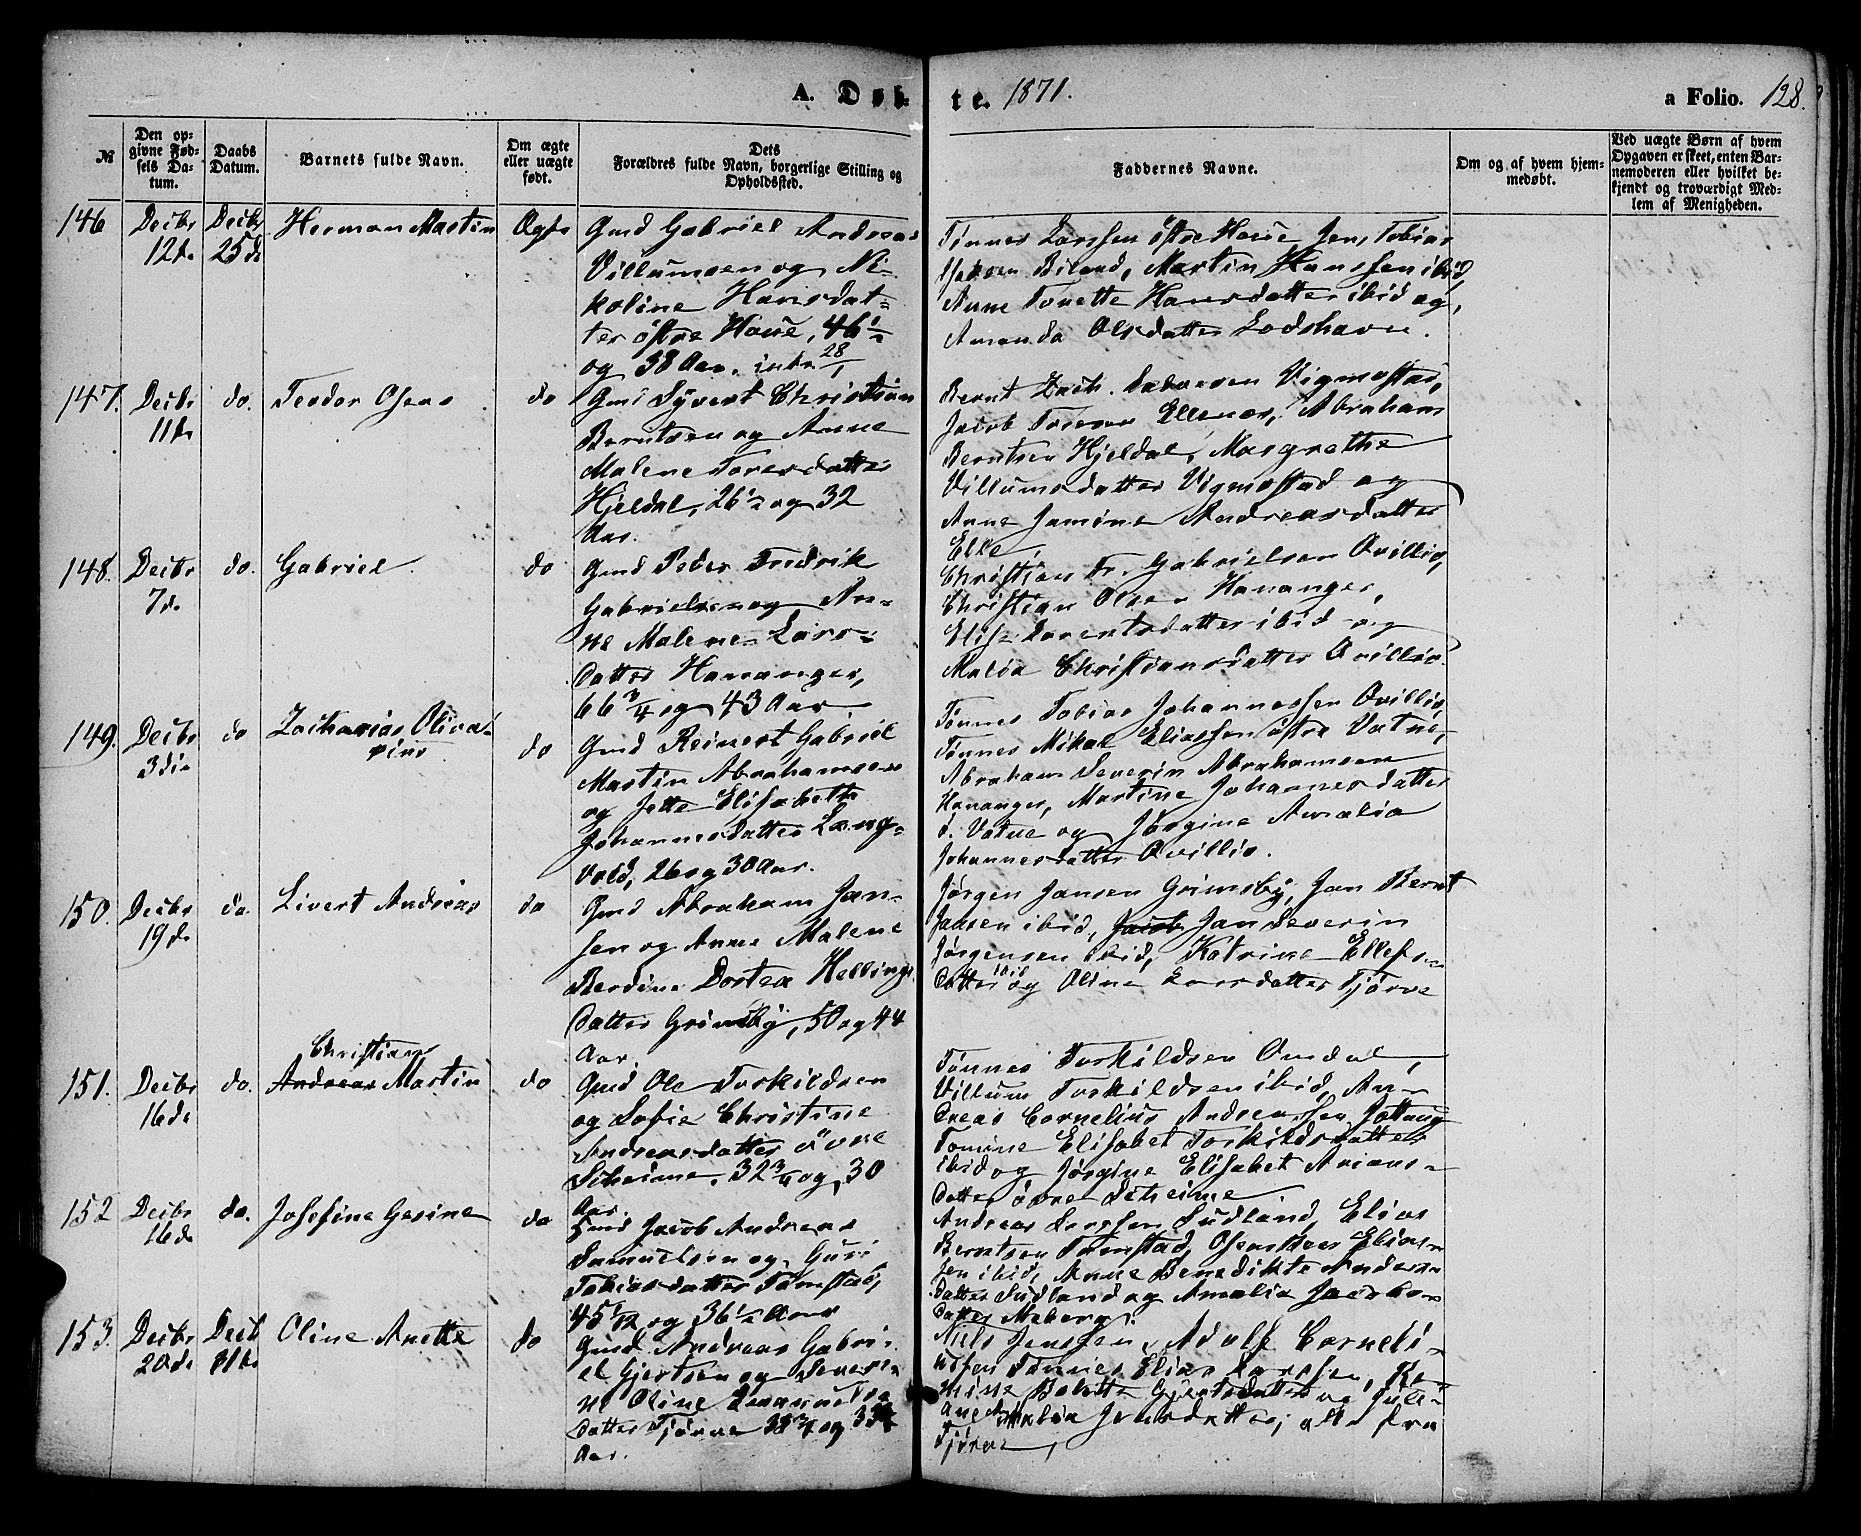 A. Døb- te. 1871. a Folio. 128.
№
Den opgivne Fødsels Datum.
Daabs Datum.
Barnets fulde Navn.
Om ægte eller uægte født.
Dets Forældres fulde Navn, borgerlige Stilling og Opholdssted.
Faddernes Navne.
Om og af hvem hjemmedøbt.
Ved uægte Børn af hvem Opgaven er skeet, enten Barnemoderen eller hvilket bekjendt og troværdigt Medlem af Menigheden.
146 Decbr 12te Decbr 25de Herman Martin Ægte
Gmd Gabriel Andreas
Villumsen og Ni-
koline Hansdat-
ter östre Haue, 46½
og 38 Aar.
Tönnes Larssen östre Haue Jens Tobias
Biland, Martin Hanssen ibid,
Anne Tonette Hansdatter ibid og
Amanda Olsdatter Lodshavn.
147. Decbr 11te do. Teodor Oseas do
Gmd Syvert Christian
Berntsen og Anne
Malene Toresdatter
Hjeldal, 26½ og 32
Aar.
Bernt Zach. Vigmostad,
Jacob Ellenæs, Abraham
Berntsen Hjeldal, Margrethe
Villumsdatter Vigmostad og
Anne Jamine Andreasdatter
Elle
148. Decbr 7de do. Gabriel do
Gmd Peder Fredrik
Gabrielsen og An-
ne Malene Lars-
datter Hananger,
66¾ og 43 Aar
Christian Fr. Gabrielsen Qvillio,
Christian Olsen Hananger,
Elise Larentsdatter ibid og
Malia Christiansdatter Qvillio.
149. Decbr 3die do Zacharias Olivarius do
Gmd Reinert Gabriel
Martin Abrahamsen
og Jette Elisabeth
Johannesdatter Lang-
vold, 26 og 30 Aar.
Tönnes Tobias Johannessen Qvillio,
Tönnes Mikal Eliassen östre Vatne,
Abraham Severin Abrahamsen
Hananger, Martine Johannesdatter
ö. Vatne og Jörgine Amalia
Johannesdatter Qvillio.
150. Decbr 19de do. Sivert Andreas do
Gmd Abraham Jan-
sen og Anne Malene
Berdine Dortea Hellings-
datter Grimsby, 50 og 44
Aar.
Jörgen Jansen Grimsby, Jan Bernt
Jansen ibid, Jacob Jan Severin
Jörgensen ibid, Katrine Ellefs-
datter ibid og Oline Larsdatter Tjörve
151. Decbr 16de do. Christian Andreas Martin do
Gmd Ole Torkildsen
og Sofie Christine
Andreasdatter övre
Skeime, 32¾ og 30
Aar.
Tönnes Torkildsen Omdal,
Villum Torkildsen ibid, An-
dreas Cornelius Andreassen Jøllaug
Tomine Elisabet Torkildsdatter
ibid og Jörgine Elisabet Arians-
datter övre Skeime
152 Decbr 16de do. Josefine Gesine do
Gmd Jacob Andreas
Samuelsen og Guri
Tobiasdatter Tomstad,
45 1/12 og 36½ Aar
Andreas Larssen Sudland, Elias
Berntsen Tomstad, Oseas Peer Elias-
sen ibid, Anne Benedikte Anders-
datter Sudland og Amalia Jacobs-
datter Meberg
153. Decbr 20de Decb 31te Oline Anette do
Gmd Andreas Gabri-
el Gjertsen og Severi-
ne Oline Emanuels-
datter Tjörve
Aar.
Nils Jenssen, Adolf Corneli-
ussen Tönnes Elias Larssen,
Bolette Gjertsdatter og Juli-
ane Malia Jensdatter, alle fra
Tjörve,